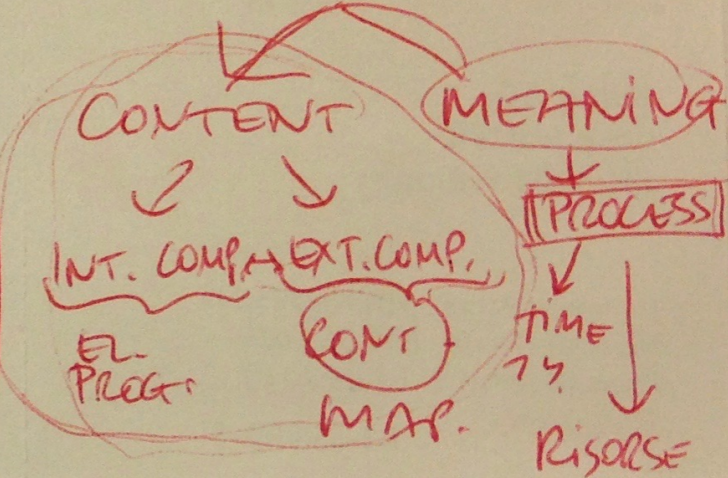 CONTENT
MEANING
PROCESS
INT. COMP.
EXT. COMP.
EL.
PROG.
CONT
MAP.
TIME
RISORSE